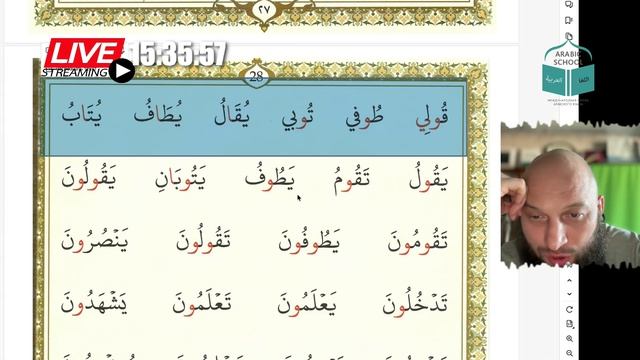 ٢٧
LIVE 15:35:57
STREAMING
28
ARABIC
SCHOOL
قُولِي طُوفِي تُوبِي يُقَالُ يُطَافُ يُتَابُ
يَقُولُ تَقُومُ يَطُوفُ يَتُوبَانِ يَقُولُونَ
تَقُومُونَ يَطُوفُونَ تَقُولُونَ يَنْصُرُونَ
تَدْخُلُونَ يَعْلَمُونَ تَعْلَمُونَ يَشْهَدُونَ